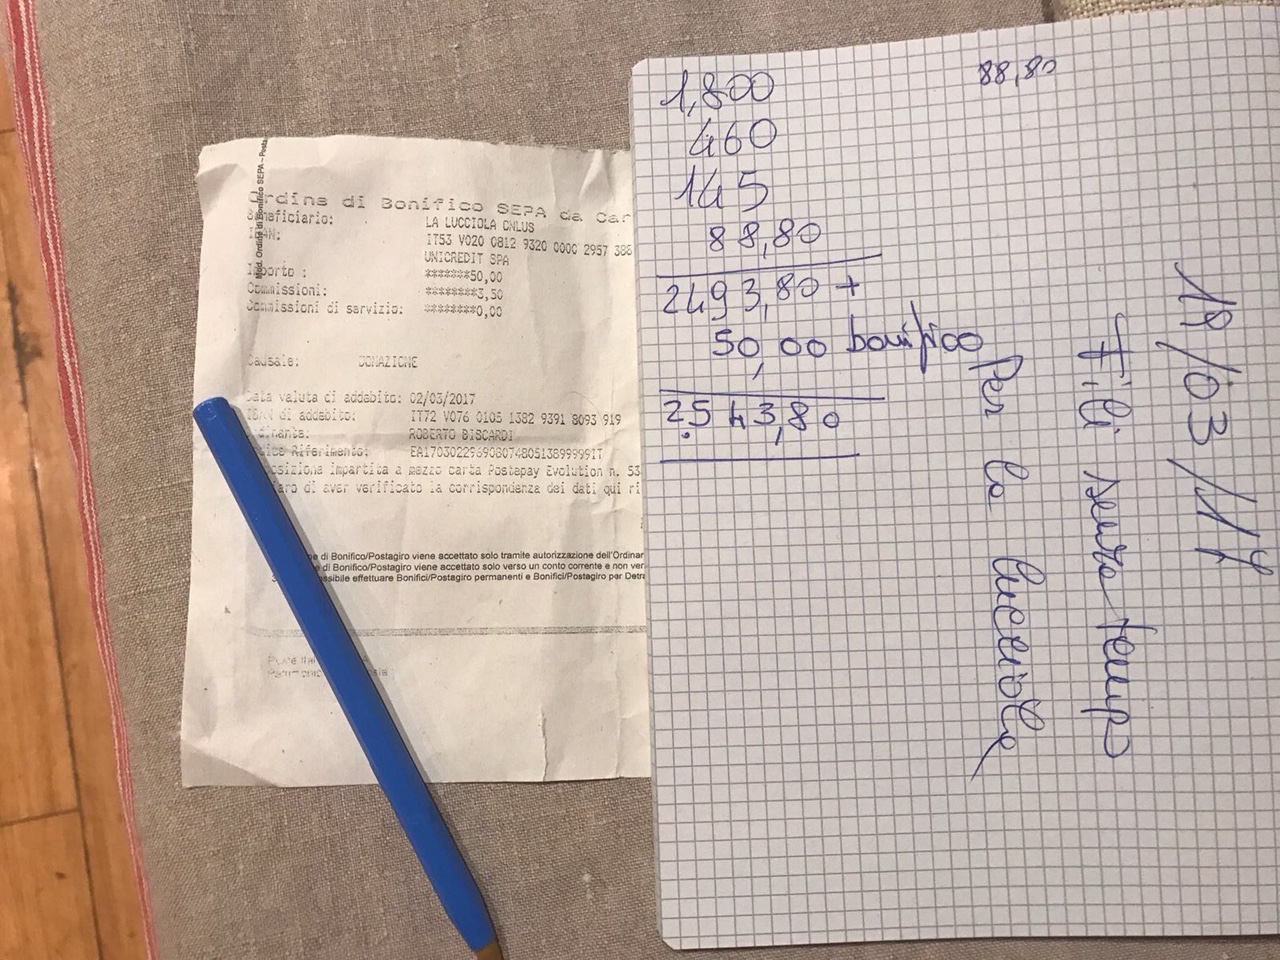 Mod. Ordine di Bonifico SEPA – Posta
Ordine di Bonifico SEPA da Car
Beneficiario: LA LUCCIOLA ONLUS
IBAN: IT53 V020 0812 9320 0000 2957 386
UNICREDIT SPA
Importo : *******50,00
Commissioni: ********3,50
Commissioni di servizio: ********0,00
Causale: DONAZIONE
Data valuta di addebito: 02/03/2017
IBAN di addebito: IT72 V076 0105 1382 9391 8093 919
dinante: ROBERTO BISCARDI
dice Riferimento: EA17030229690807480513899999IT
posizione impartita a mezzo carta Postepay Evolution n. 53
iaro di aver verificato la corrispondenza dei dati qui ri
ne di Bonifico/Postagiro viene accettato solo tramite autorizzazione dell'Ordinar
e di Bonifico/Postagiro viene accettato solo verso un conto corrente e non ver
ssibile effettuare Bonifici/Postagiro permanenti e Bonifici/Postagiro per Detra
1,800
460
145
88,80
2493,80 +
50,00 bonifico
2.543,80
88,80
19/03/17
Fili senza tempo
Per le lucciole